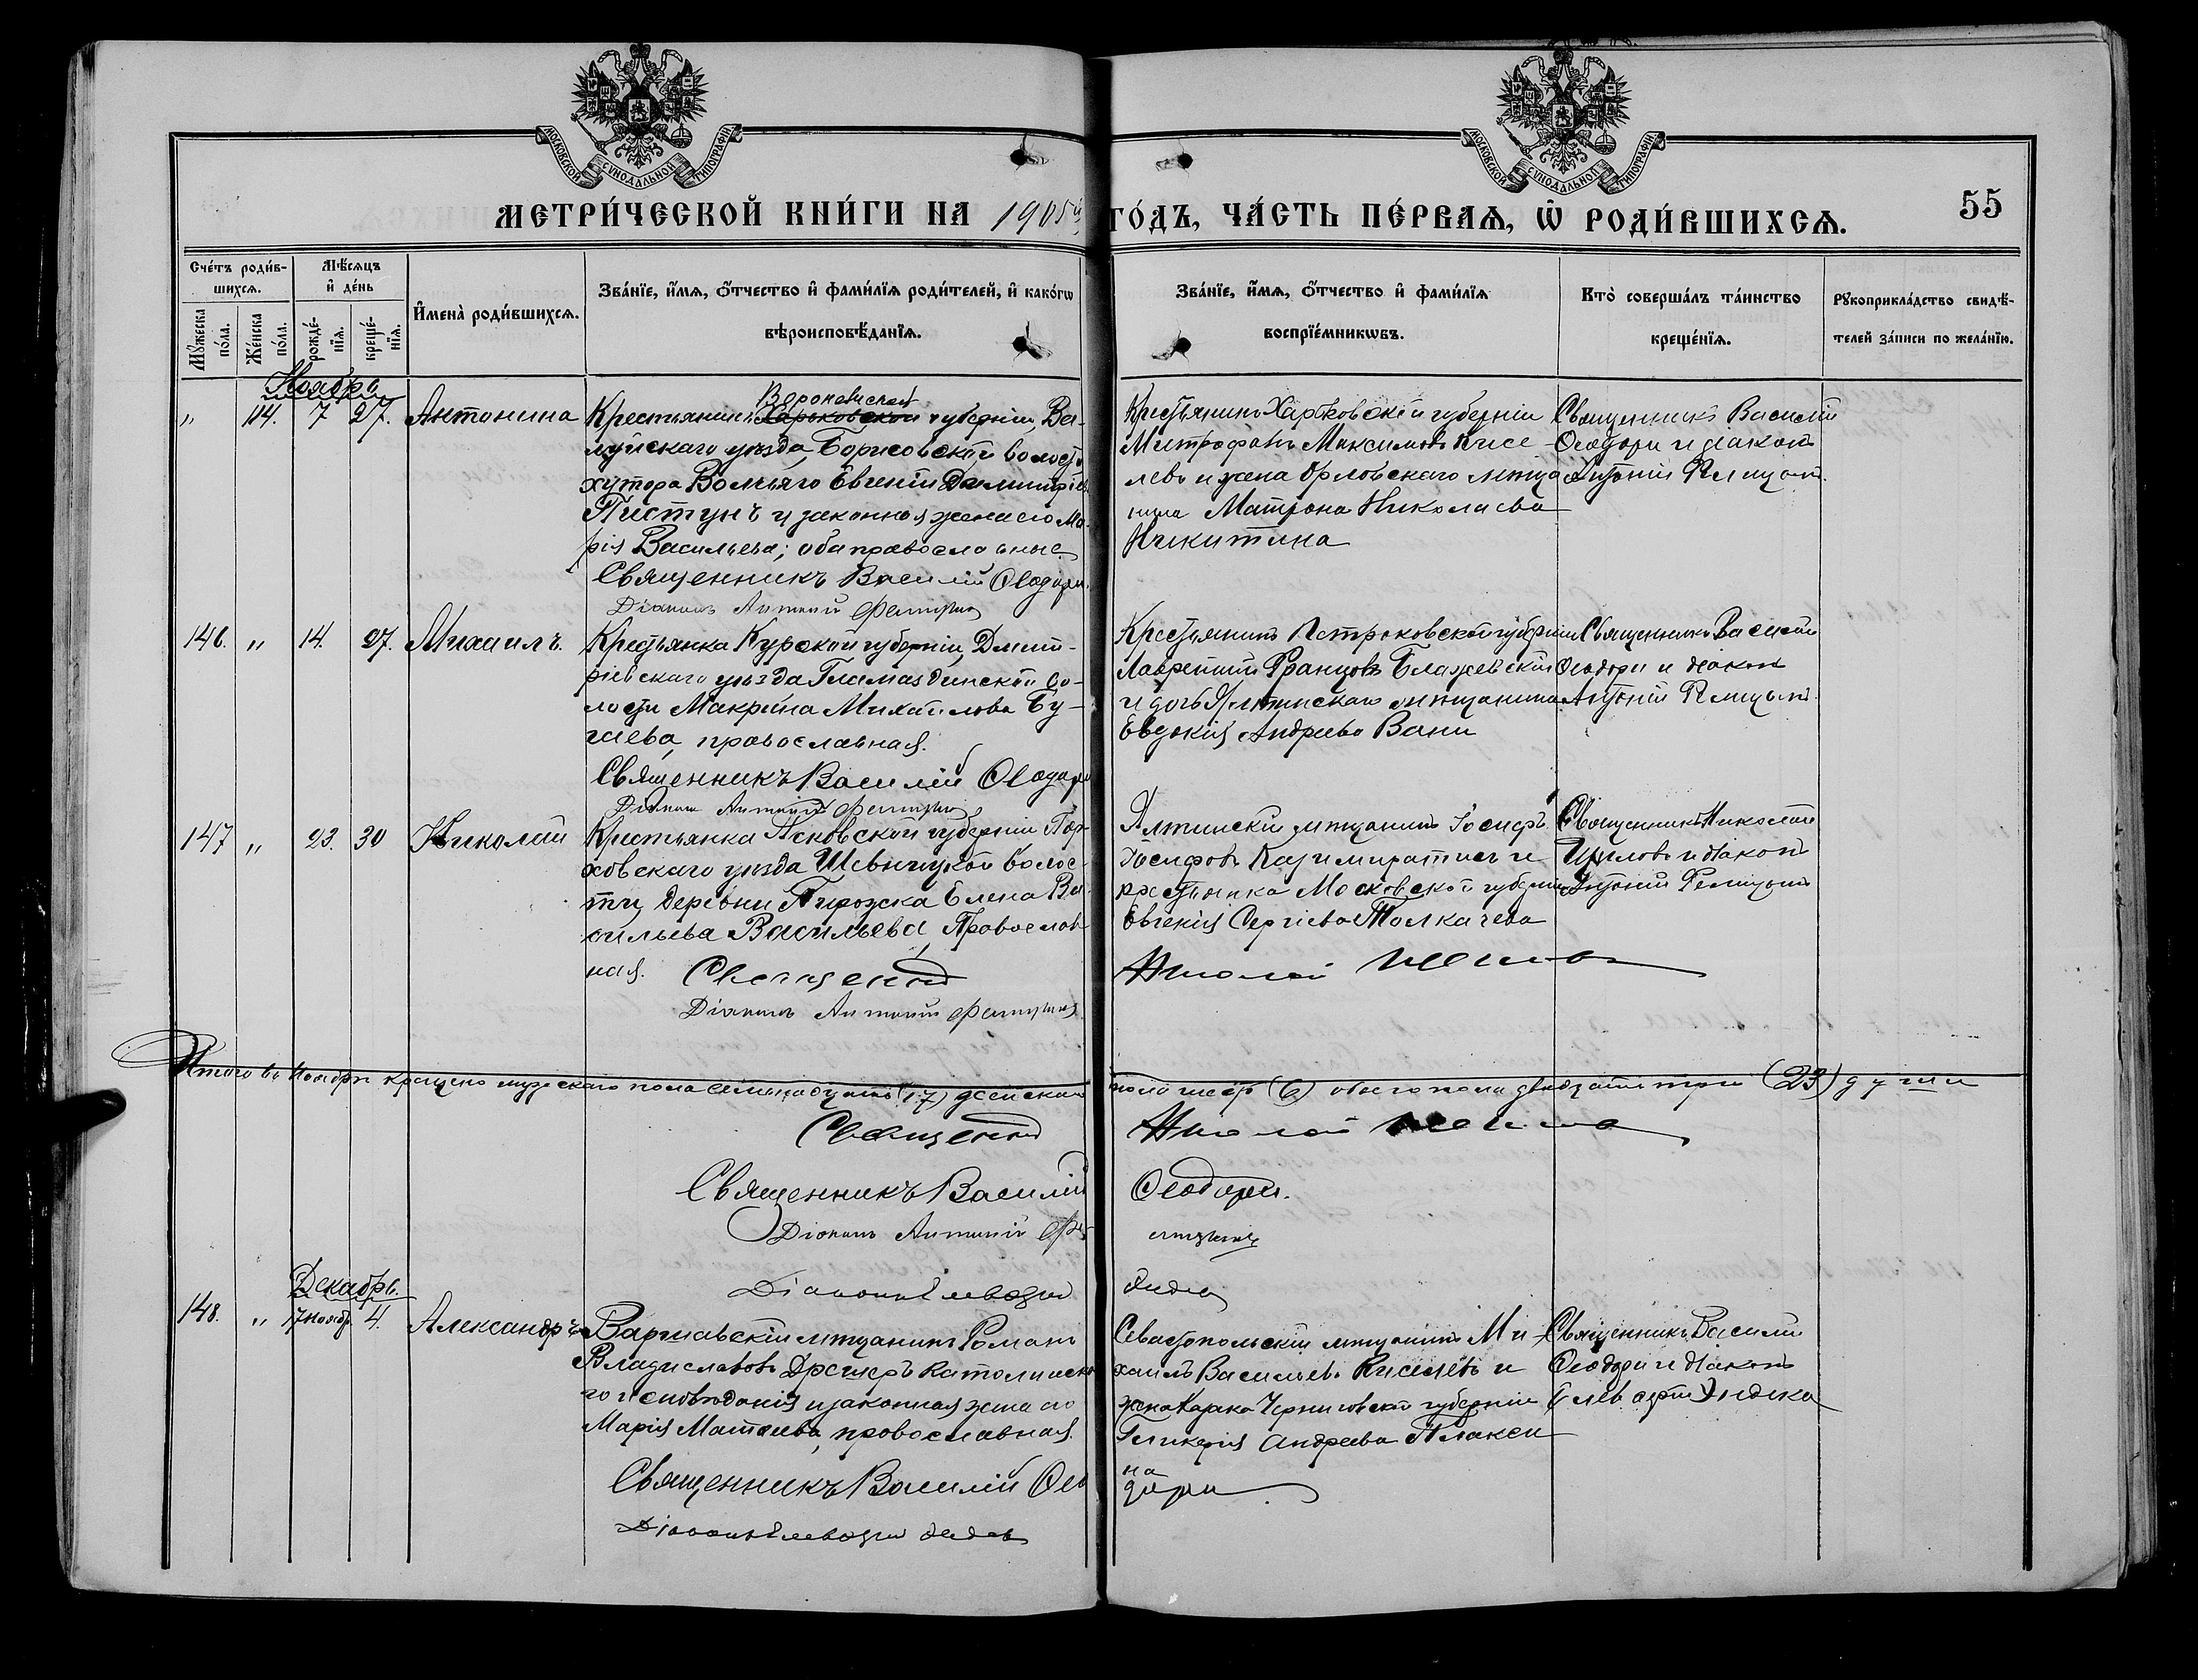 МОСКОВСКОЙ СУНОДАЛЬНОЙ ТИПОГРАФІИ
МОСКОВСКОЙ СУНОДАЛЬНОЙ ТИПОГРАФІИ
МЕТРИ́ЧЕСКОЙ КНИ́ГИ НА 1905й ГО́ДЪ, ЧА́СТЬ ПЕ́РВАѦ, Ѡ҆ РОДИ́ВШИХСѦ.
55
Счéтъ роди́в-
шихсѧ.
Мꙋжеска по́ла.
Же́нска по́ла.
Мѣ́сѧцъ
и҆ де́нь
рожде́-
нїѧ.
креще́-
нїѧ.
И҆мена̀ роди́вшихсѧ.
Зва́нїе, и҆́мѧ, ѻ҆́тчество и҆ фами́лїѧ роди́телей, и҆ како́гѡ
вѣроисповѣ́данїѧ.
Зва́нїе, и҆́мѧ, ѻ҆́тчество и҆ фами́лїѧ
воспрїе́мникѡвъ.
Кто̀ соверша́лъ та́инство
креще́нїѧ.
Рꙋкоприкла́дство свидѣ́-
телей за́писи по жела́нїю.
Ноябрь
" 114. 7 27. Антонина
Воронежской
Крестьянинъ Харьковской губерніи, Ва-
луйскаго уѣзда, Борисовской волости
хутора Вольяго Евгеній Димитріев
Пистунъ и законная жена его Ма-
рія Васильева; оба православные
Священникъ Василій Ѳеодори
Діаконъ Антоній
Крестьянинъ Харьковской губерніи
Митрофанъ Максимовъ Кисе-
левъ и жена Орловскаго мѣща-
нина Матрона Николаева
Никитина
Священникъ Василій
Ѳеодори и діаконъ
Антоній
146. " 14. 27. Михаилъ.
Крестьянка Курской губерніи, Дмит-
ріевскаго уѣзда Гламаздинской во-
лости Макрина Михайлова Бу-
гаева, православная.
Священникъ Василій Ѳеодори
Діаконъ Антоній
Крестьянинъ Петроковской губерніи
Лаврентій Францовъ Блажевскій
и дочь Ялтинскаго мѣщанина
Евдокія Андреева Вани
Священникъ Василій
Ѳеодори и діаконъ
Антоній
147 " 23. 30 Николай
Крестьянка Псковской губерніи Пор-
ховскаго уѣзда Шевницкой волос-
ти, деревни Елена Ва-
сильева Васильева, Православ-
ная. Священникъ
Діаконъ Антоній
Ялтинскій мѣщанинъ Іосифъ
Іосифовъ и
крестьянка Московской губерніи
Евгенія Сергіева Толкачева
Николай
Священникъ Николай
и діаконъ
Антоній
Итого въ Ноябрѣ крещено мужескаго пола семнадцать (17) женскаго
пола шесть (6) обоего пола двадцать три (23) души
Священникъ Николай
Священникъ Василій Ѳеодори.
Діаконъ Антоній
Діаконъ
Декабрь.
148. " 17 Ноябр 4. Александръ
Варшавскій мѣщанинъ Романъ
Владиславовъ Дрешеръ Католическа-
го исповѣданія и законная жена его
Марія Матѳеева, православная.
Священникъ Василій Ѳео
дори
Діаконъ
Севастопольскій мѣщанинъ Ми-
хаилъ Васильевъ Киселевъ и
жена Казака Черниговской губерніи
Гликерія Андреева Плакси
на
Священникъ Василій
Ѳеодори и діаконъ